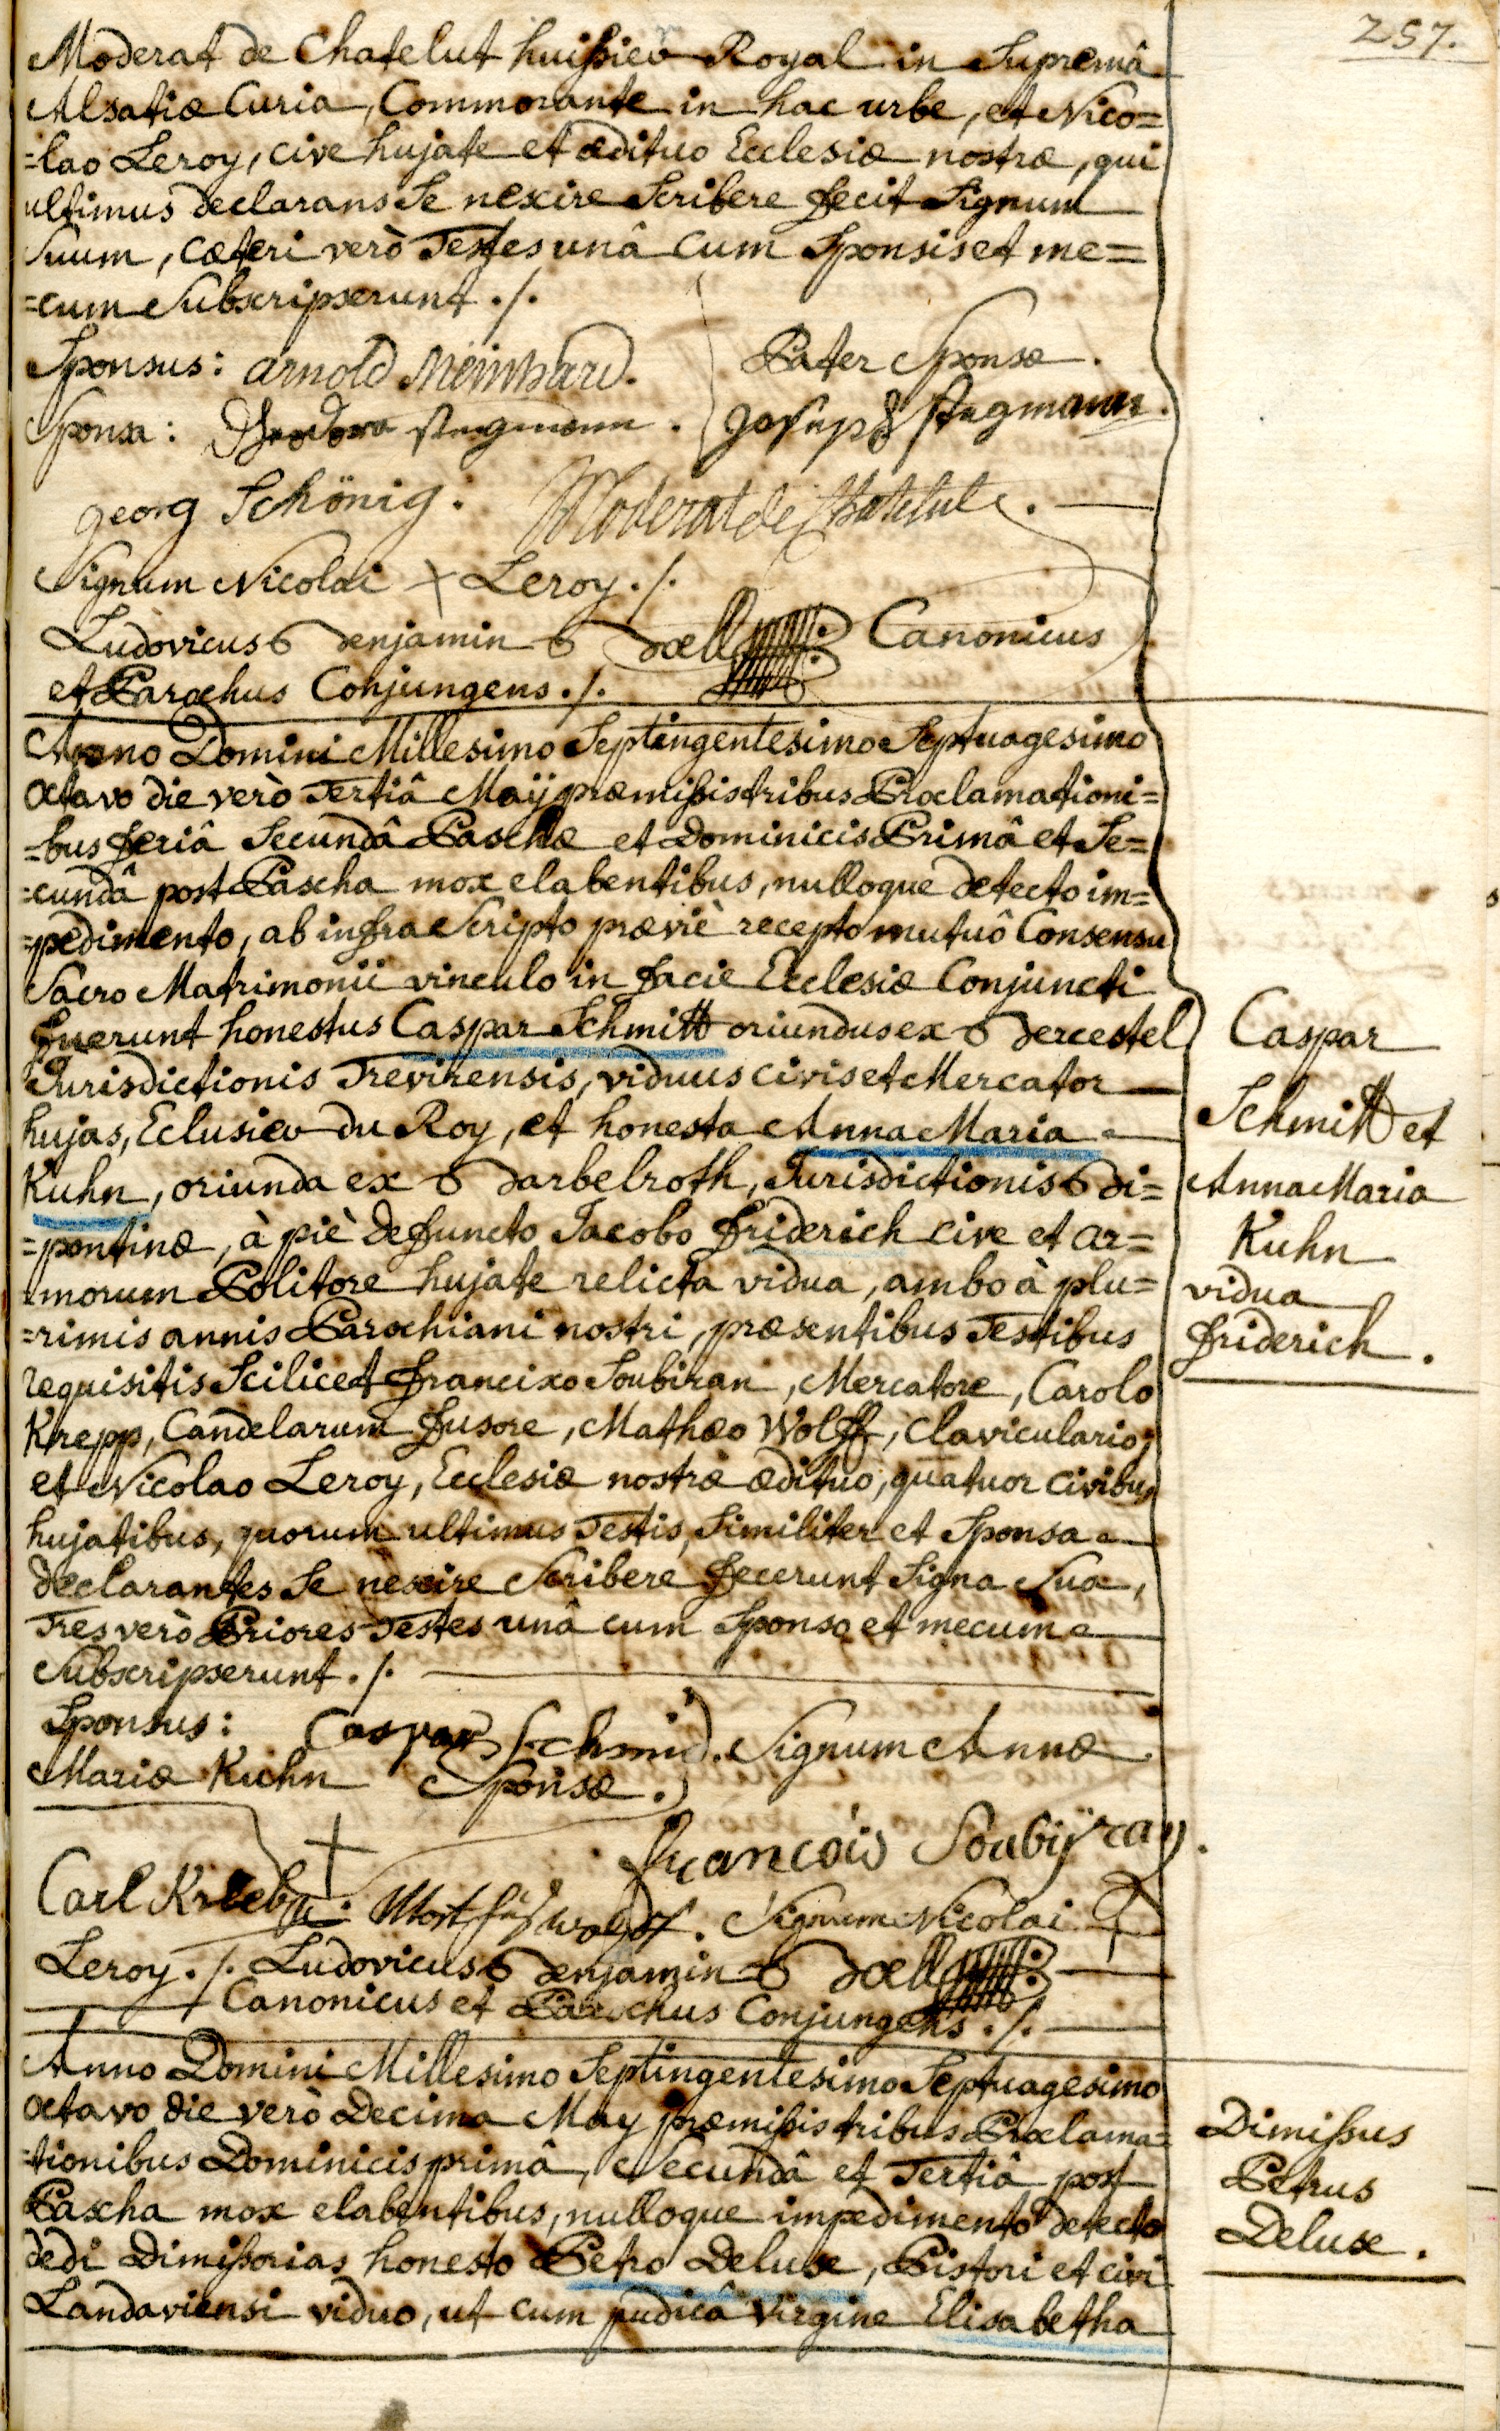 257.
Moderat de Chatelut huissier Royal in Supremâ
Alsatiæ Curia, Commorante in hac urbe, et Nico=
=lao Leroy, cive hujate et ædituo Ecclesiæ nostræ, qui
ultimus declarans Se nescire Scribere fecit Signum
Suum, cæteri verò Testes unâ cum Sponsis et me=
=cum Subscripserunt ./.
Sponsus: arnold Meinhard. Pater Sponsæ.
Sponsa: Theodora stegmann. Joseph stegmann.
georg Schönig. Moderat de Chatelut.
Signum Nicolai x Leroy ./.
Ludovicus Benjamin Boell Canonicus
et Parochus Conjungens ./.
Anno Domini Millesimo Septingentesimo Septuagesimo
Octavo die verò Tertiâ Maÿ præmissis tribus Proclamationi=
=bus feriâ Secundâ Paschæ et Dominicis Primâ et Se=
=cundâ post Pascha mox elabentibus, nulloque detecto im=
=pedimento, ab infra Scripto præviè recepto mutuô Consensu
Sacro Matrimonii vinculo in facie Ecclesiæ Conjuncti
fuerunt honestus Caspar Schmitt oriundus ex Bercestel
Jurisdictionis Trevirensis, viduus civis et Mercator
hujas, Eclusier du Roy, et honesta Anna Maria
Kuhn, oriunda ex Barbelroth, Jurisdictionis Bi=
=pontinæ, à piè defuncto Jacobo friderich cive et ar=
=morum Politore hujate relicta vidua, ambo à plu=
=rimis annis Parochiani nostri, præsentibus Testibus
requisitis Scilicet francisco Soubiran, Mercatore, Carolo
Krepp, Candelarum fusore, Mathæo Wolff, Claviculario,
et Nicolao Leroy, Ecclesiæ nostræ ædituo, quatuor civibus
hujatibus, quorum ultimus Testis, Similiter et Sponsa
declarantes Se nescire Scribere fecerunt Signa Sua,
Tres verò Priores Testes unâ cum Sponso et mecum
Subscripserunt ./.
Sponsus: Caspar Schmid. Signum Annæ
Mariæ Kuhn Sponsæ.
françois Soubiÿran.
Carl Krebp. Wolff. Signum Nicolai
Leroy ./. Ludovicus Benjamin Boell
Canonicus et Parochus Conjungens ./.
Anno Domini Millesimo Septingentesimo Septuagesimo
Octavo die verò Decima May præmissis tribus Proclama=
=tionibus Dominicis primâ, Secundâ et Tertiâ post
Pascha mox elabentibus, nulloque impedimento detecto
dedi Dimissorias honesto Petro Deluse, Pistori et civi
Landaviensi viduo, ut cum pudicâ Virgine Elisabetha
Caspar
Schmitt et
Anna Maria
Kuhn
vidua
friderich.
Dimissus
Petrus
Deluse.